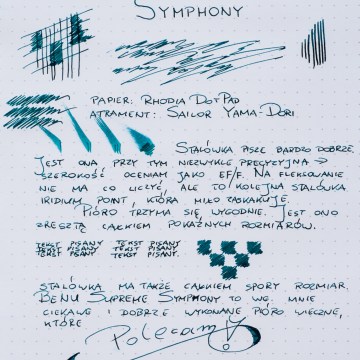 SYMPHONY
PAPIER: RHODIA DOTPAD
ATRAMENT: SAILOR YAMA-DORI
STALÓWKA PISZE BARDZO DOBRZE.
JEST ONA PRZY TYM NIEZWYKLE PRECYZYJNA →
SZEROKOŚĆ OCENIAM JAKO EF/F. NA FLEKSOWANIE
NIE MA CO LICZYĆ, ALE TO KOLEJNA STALÓWKA
IRIDIUM POINT, KTÓRA MIŁO ZASKAKUJE.
PIÓRO TRZYMA SIĘ WYGODNIE. JEST ONO
ZRESZTĄ CAŁKIEM POKAŹNYCH ROZMIARÓW.
TEKST PISANY TEKST PISANY
TEKST PISANY. TEKST PISANY.
TEKST PISANY. TEKST PISANY.
STALÓWKA MA TAKŻE CAŁKIEM SPORY ROZMIAR.
BENU SUPREME SYMPHONY TO WG. MNIE
CIEKAWE I DOBRZE WYKONANE PIÓRO WIECZNE,
KTÓRE
Polecam!